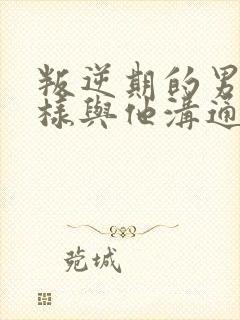 叛逆期的男
樣與他溝通
菀城